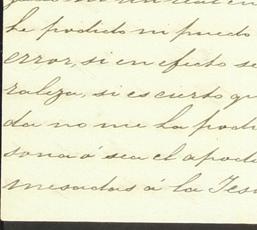 he podido ni puedo
error, si en efecto se
raliza, si es cierto qu
da no me ha podi
sona ó sea el apode
mesadas á la Teso